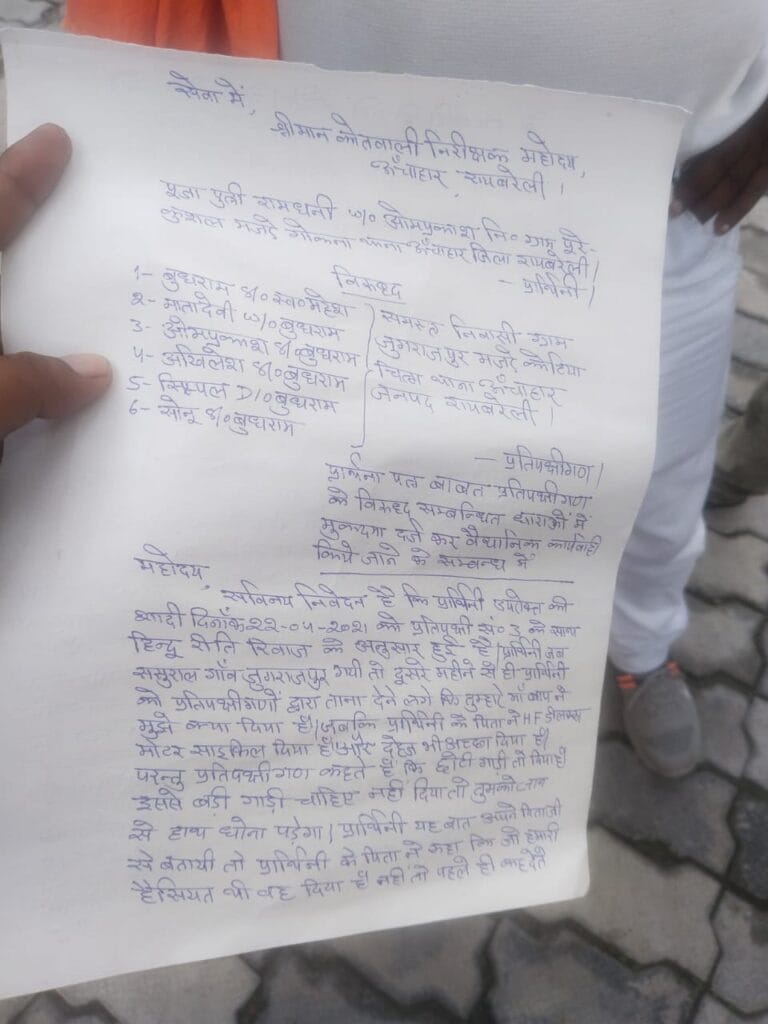 सेवा में,
श्रीमान कोतवाली निरीक्षक महोदय,
ऊँचाहार, रायबरेली ।
पूजा पुत्री रामधनी w/o ओमप्रकाश नि० ग्राम पूरे-
कुशल मजरे गोकना थाना ऊँचाहार जिला रायबरेली।
- प्रार्थिनी।
विरुद्ध
1- बुधराम s/o स्व० महेश
2- मातादेवी w/o बुधराम
3- ओमप्रकाश s/o बुधराम
4- अखिलेश s/o बुधराम
5- सिम्पल D/o बुधराम
6- सोनू s/o बुधराम
समस्त निवासी ग्राम
जुगराजपुर मजरे कोटिया
चित्रा थाना ऊँचाहार
जनपद रायबरेली ।
- प्रतिपक्षीगण।
प्रार्थना पत्र बाबत प्रतिपक्षीगण
के विरुद्ध सम्बन्धित धाराओं में
मुकदमा दर्ज कर वैधानिक कार्यवाही
किये जाने के सम्बन्ध में
महोदय,
सविनय निवेदन है कि प्रार्थिनी उपरोक्त की
शादी दिनाँक 22-04-2021 को प्रतिपक्षी सं० 3 के साथ
हिन्दू रीति रिवाज के अनुसार हुई है। प्रार्थिनी जब
ससुराल गाँव जुगराजपुर गयी तो दुसरे महीने से ही प्रार्थिनी
को प्रतिपक्षीगणों द्वारा ताना देने लगे कि तुम्हारे माँ बाप ने
मुझे क्या दिया है। जबकि प्रार्थिनी के पिता ने HF डीलक्स
मोटर साइकिल दिया है। और दहेज भी अच्छा दिया है।
परन्तु प्रतिपक्षीगण कहते हैं कि छोटी गाड़ी तो दिया है
इससे बड़ी गाड़ी चाहिए नहीं दिया तो तुमको जान
से हाथ धोना पड़ेगा। प्रार्थिनी यह बात अपने पिताजी
से बतायी तो प्रार्थिनी के पिता ने कहा कि जो हमारी
हैसियत थी वह दिया है नहीं तो पहले ही कह देते